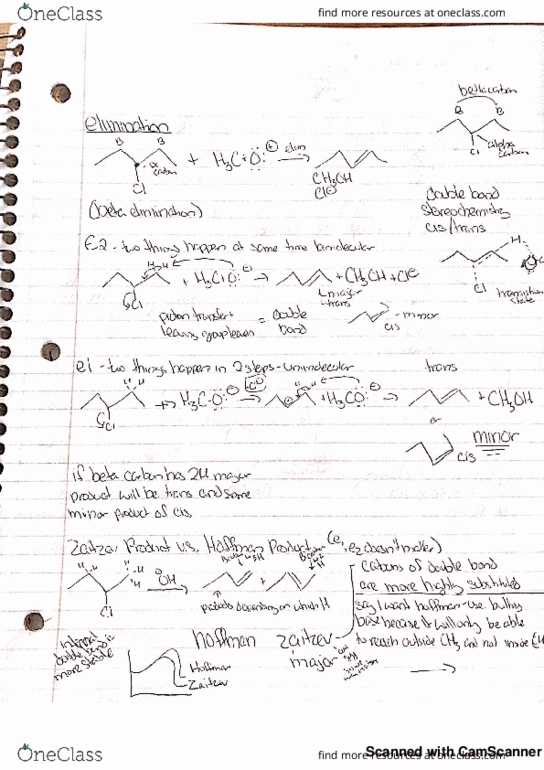 OneClass
find more resources at oneclass.com
beta carbon
B B
Cl
alpha carbon
elimination
B B
α carbon
Cl
+ H3C-O: ⊖ elim
CH3OH
Cl⊖
(beta elimination)
double bond
stereochemistry
cis/trans
E2 - two things happen at same time bimolecular
H
Cl
transition state
H H
Cl
+ H3C-O: ⊖ → + CH3OH + Cl⊖
major
trans
proton transfer
leaving group leaves
= double bond
- minor
cis
e1 - two things happen in 2 steps - unimolecular
trans
H H
Cl
H3C-O: ⊖
+ H3CO: ⊖ →
+ CH3OH
or
cis
minor
if beta carbon has 2H major
product will be trans and some
minor product of cis
Zaitzev Product v.s. Hoffman Product (e1, e2 doesn't matter)
H H H
Cl
⊖OH
+
depending on which H
Carbons of double bond
are more highly substituted
say I want hoffman - use bulky
base because it will only be able
to reach outside CH3 and not inside
internal double bond is more stable
Hoffman
Zaitzev
hoffman
zaitzev
major
OneClass
find more resources at oneclass.com
Scanned with CamScanner